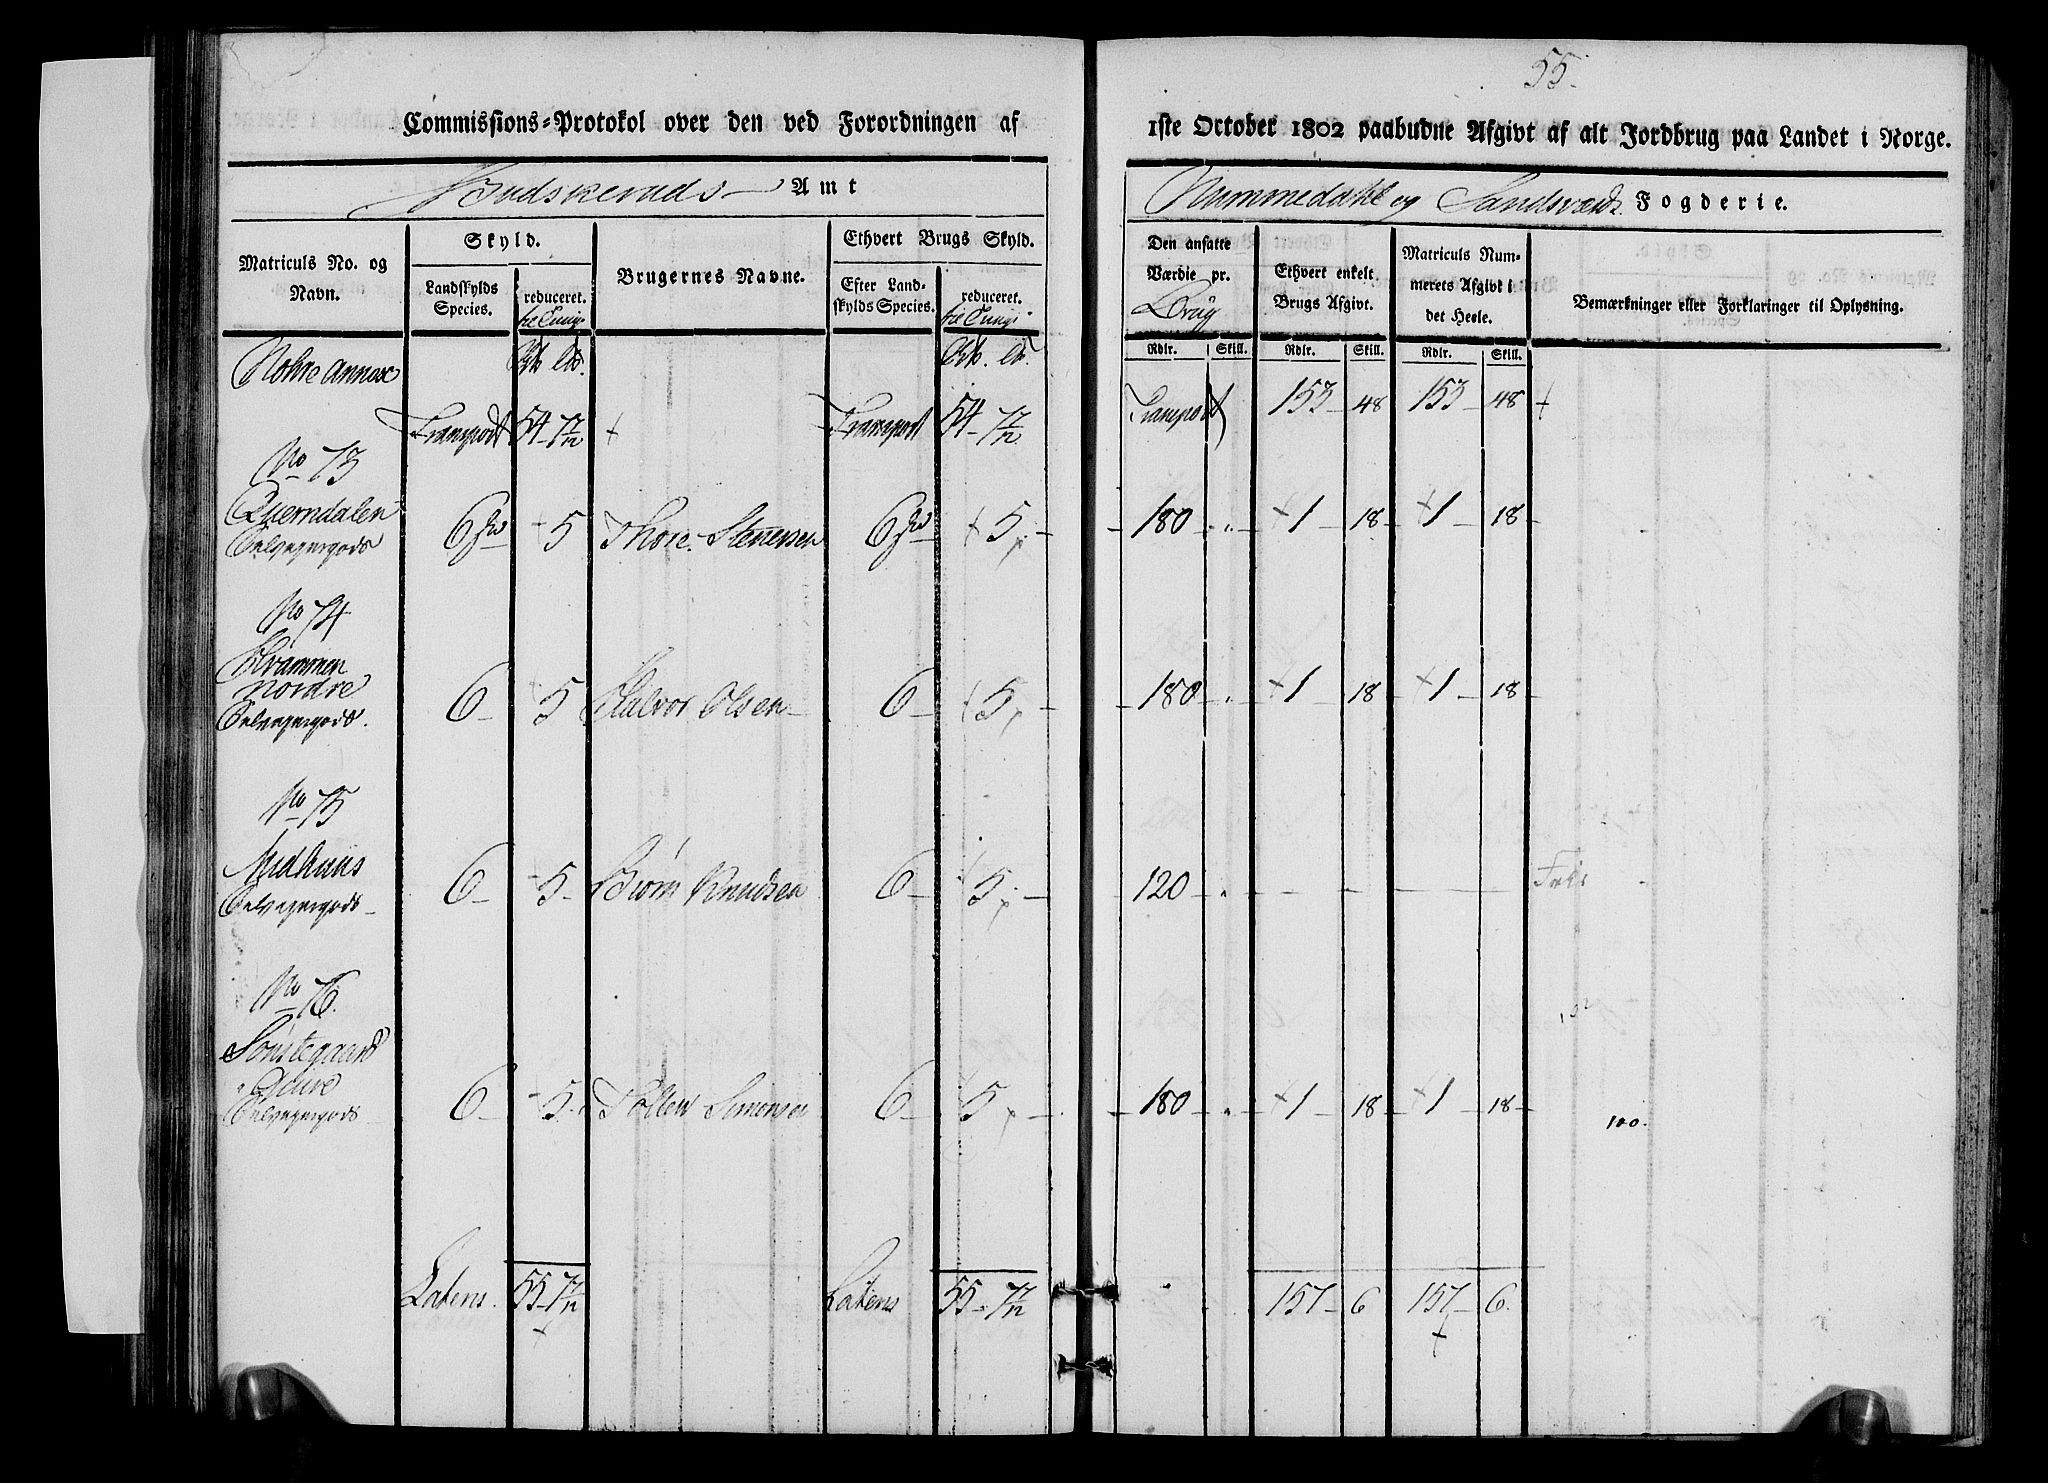 55.
Commissions-Protokol over den ved Forordningen af
1ste October 1802 paabudne Afgivt af alt Jordbrug paa Landet i Norge.
Budskeruds Amt
Nummedahl og Sandsværds Fogderie.
Matriculs No. og Navn.
Skyld.
Landskylds Species.
reduceret.
til Tunge
Brugernes Navne.
Ethvert Brugs Skyld.
Efter Landskylds Species.
reduceret.
til Tunge
Den ansatte Værdie pr.
Brug
Ethvert enkelt Brugs Afgivt.
Matriculs Nummerets Afgivt i det Heele.
Bemærkninger eller Forklaringer til Oplysning.
Rdlr. Skill. Rdlr. Skill. Rdlr. Skill.
Nohre Annex
Transport 54 - 7/12 Transport 54 - 7/12 Transport 153 - 48 153 - 48
No 73
Qverndalen
Selveyergods 6 5 Thore Stenersen 6 5 180 1 18 1 18
No 74
Strammen
Nordre
Selveyergods. 6 5 Halvor Olsen 6 5 180 1 18 1 18
No 75
Midhuus
Selveyergods 6 5 Biørn Knudsen 6 5 120 Frie
No 76.
Sønstegaard
Øvre
Selveyergods 6 5 Tollew Simensen 6 5 180 1 18 1 18
100.
Latens. 55 - 7/12 Latens 55 - 7/12 157 - 6 157 - 6.